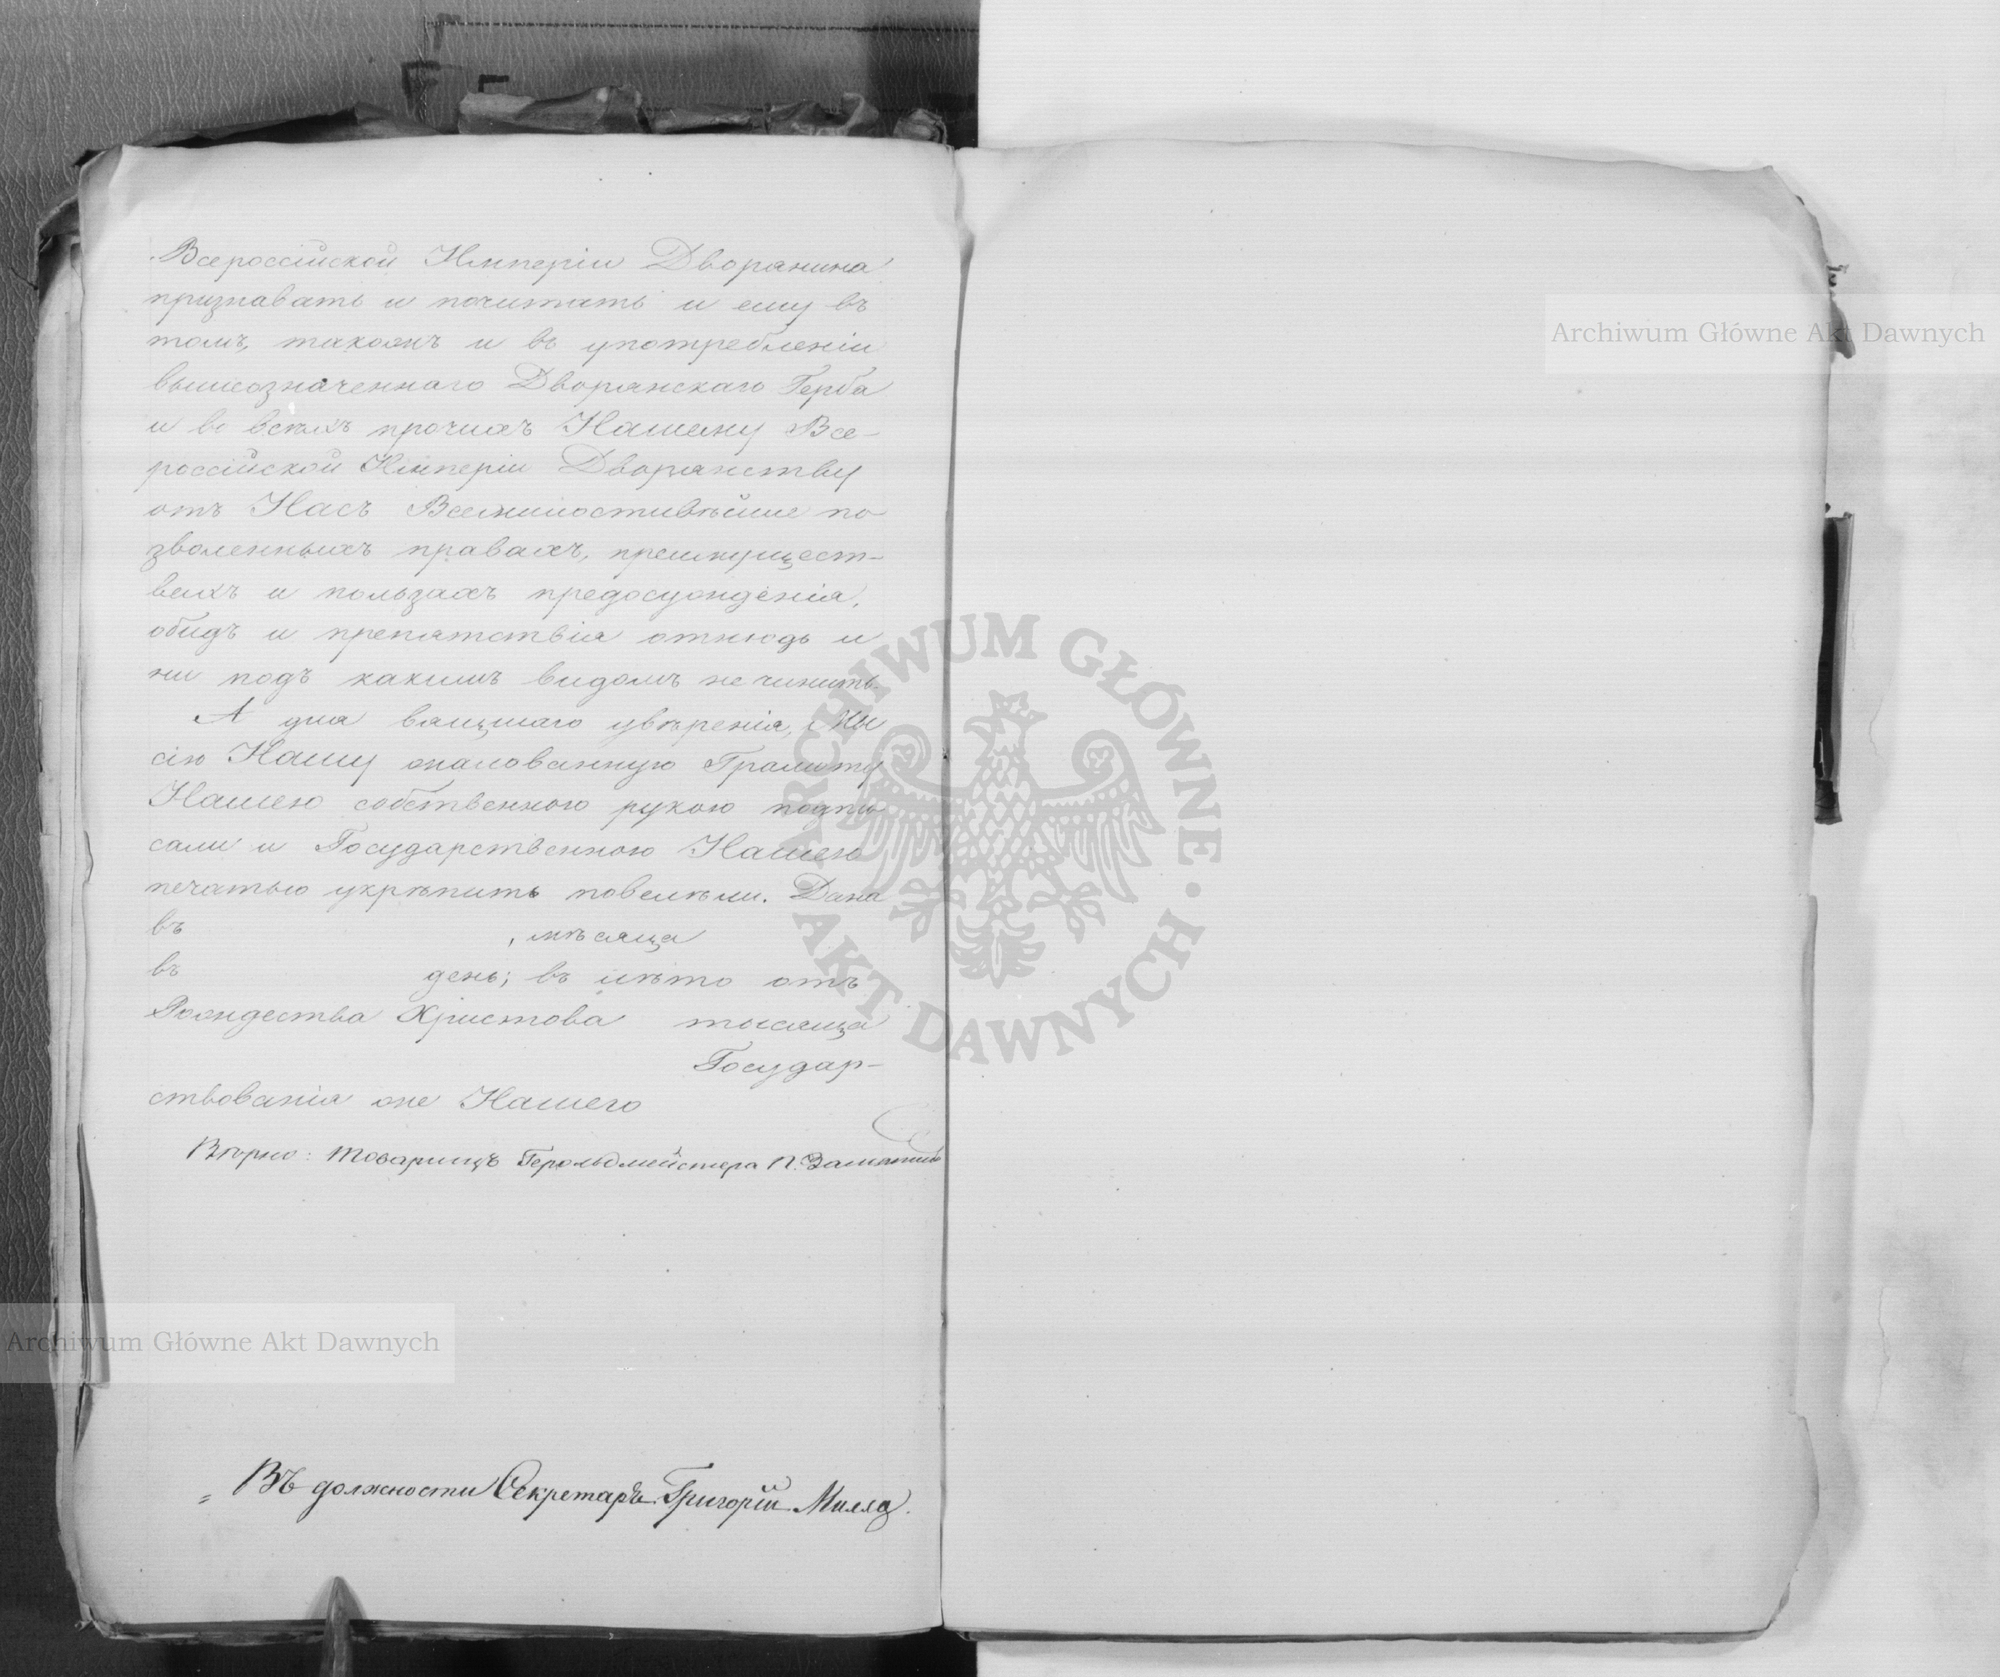 Всероссійской Имперіи Дворянина
признавать и почитать и ему въ
томъ, такожъ и въ употребленіи
вышеозначеннаго Дворянскаго Герба
и во всѣхъ прочихъ Нашему Все-
россійской Имперіи Дворянству
отъ Насъ Всемилостивѣйше по
зволенныхъ правахъ, преимущест-
вахъ и пользахъ предосужденія,
обидъ и препятствія отнюдь и
ни подъ какимъ видомъ не чинить.
А для вящшаго увѣренія, Мы
сію Нашу жалованную Грамоту
Нашею собственною рукою подпи
сали и Государственною Нашею
печатью укрѣпить повелѣли. Дана
въ , мѣсяца
въ день; въ лѣто отъ
Рождества Христова тысяща
Государ-
ствованія же Нашего
Вѣрно: Товарищъ Герольдмейстера П.
Въ должности Секретаря Григорій
Archiwum Główne Akt Dawnych
Archiwum Główne Akt Dawnych
ARCHIWUM GŁÓWNE AKT DAWNYCH